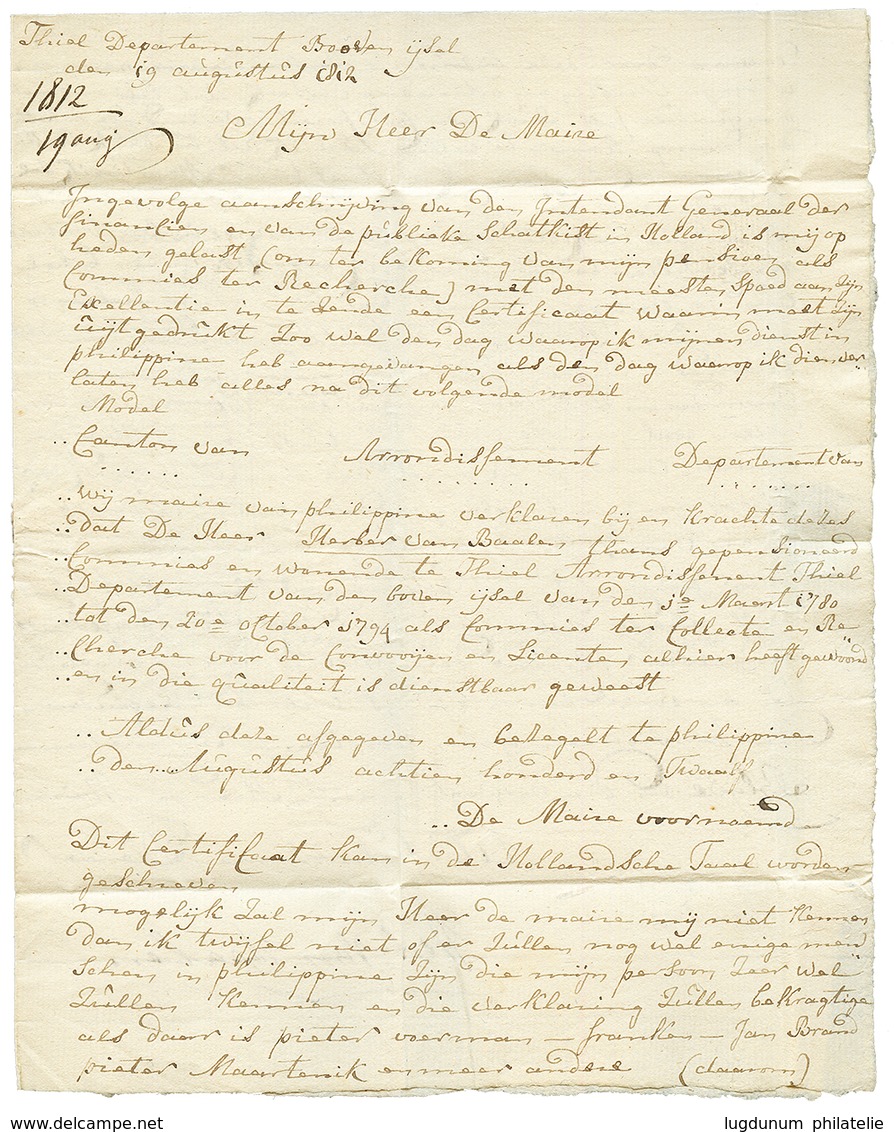 Thiel Departement Boven ijsel
den 19 augustus 1812
1812
19 aug
Mijn Heer De Maire
Ingevolge aanschrijving van den Intendant Generaal der
financien en van de publieke Schatkist in Holland is mij op
heden gelast (om ter bekoming van mijn pensioen als
Commies ter Recherche) met den meesten spoed aan Zijn
Excellentie in te Zende een Certificaat waarin moet Zijn
uijtgedrukt Zoo wel den dag waarop ik mijnen dienst in
philippine heb aangevangen als den dag waarop ik dien ver
laten heb alles na dit volgende model
Model
.. Canton van Arrondissement Departement van
.. wij maire van philippine verklaren bij en krachte dezes
.. dat De Heer Herber van Baalen thans gepensioneerd
.. Commies en wonende te Thiel Arrondissement Thiel
.. Departement van den boven ijsel van den 1e Maert 1780
.. tot den 20e october 1794 als Commies ter Collecte en Re
.. Cherche voor de Convooijen en Licenten alhier heeft gewoond
.. en in die qualiteit is dienstbaar geweest
.. Aldus deze afgegeven en bezegelt te philippine
.. den .. Augustus achtien honderd en Twaalf
.. De Maire voornoemd
Dit Certificaat kan in de Hollandsche Taal worden
geschreven
mogelijk Zal mijn Heer de maire mij niet kennen
dan ik twijfel niet of er Zullen nog wel enige men
schen in philippine Zijn die mijn persoon Zeer wel
Zullen kennen en die verklaring Zullen bekragtige
als daar is pieter voerman - franken - Jan Brand
pieter Maartenik en meer andere (daarom)
www.delcampe.net
lugdunum philatelie